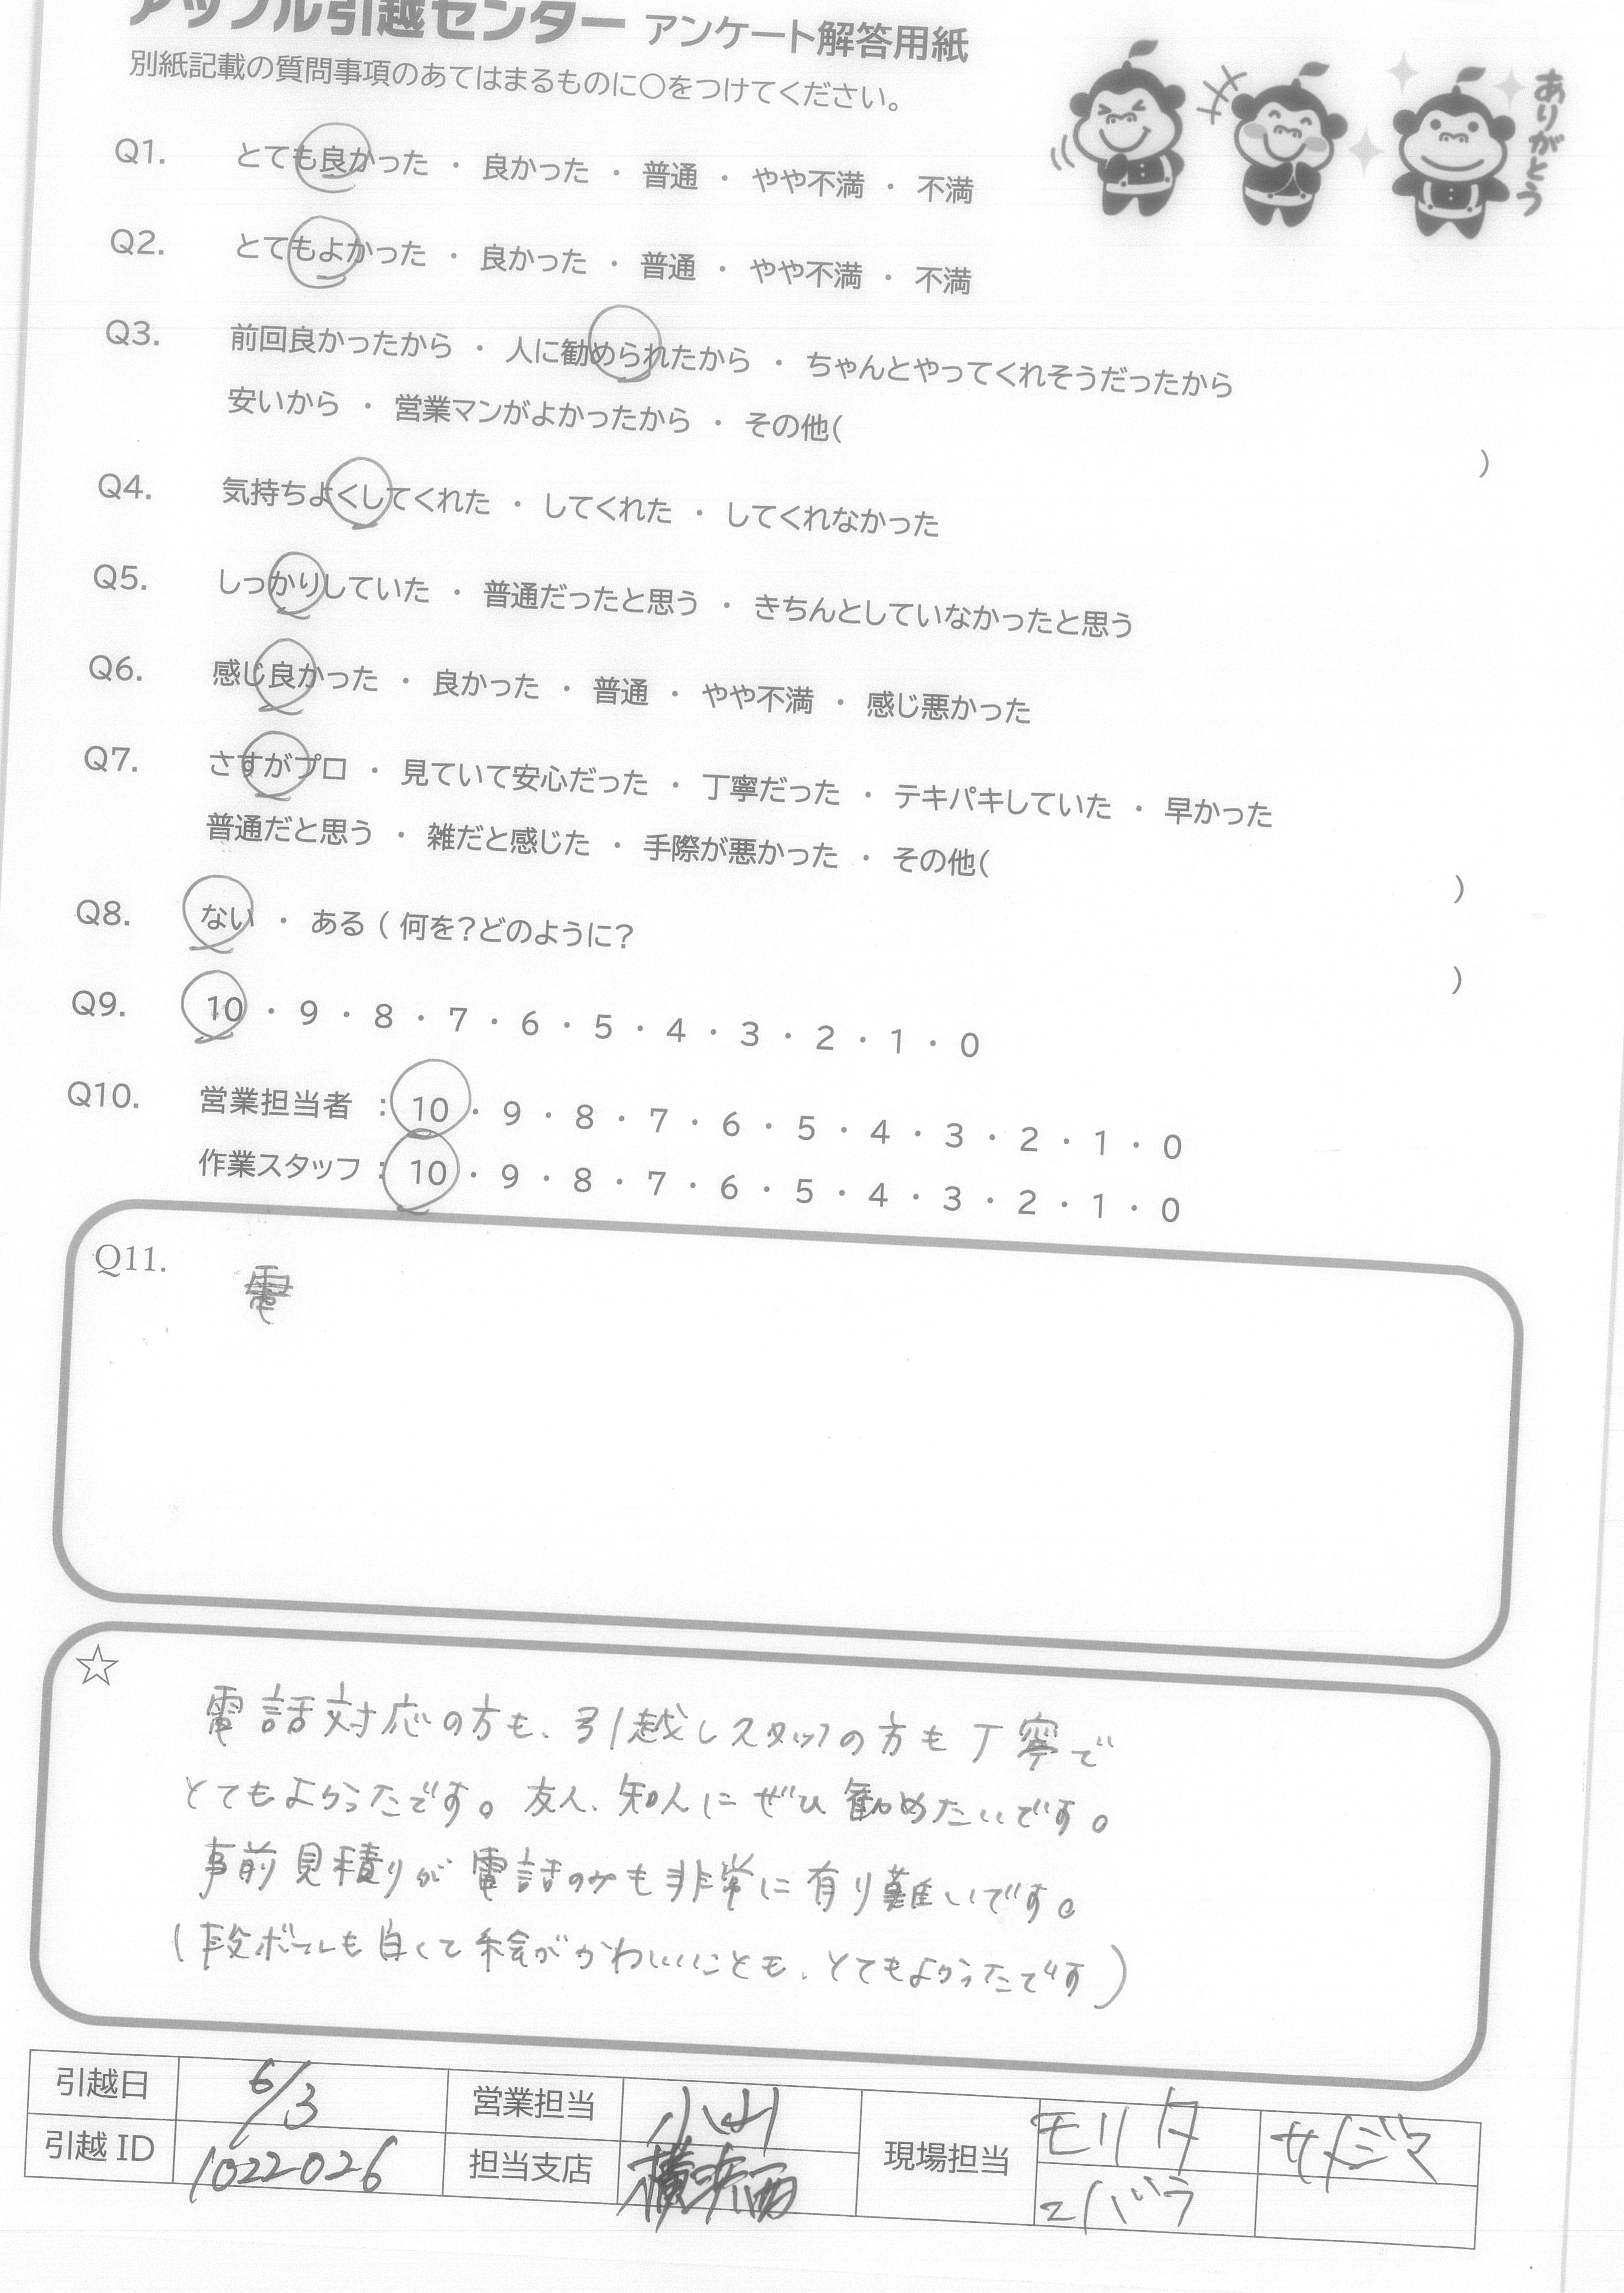 アップル引越センター アンケート解答用紙
別紙記載の質問事項のあてはまるものに〇をつけてください。
ありがとう
Q1. とても良かった ・ 良かった ・ 普通 ・ やや不満 ・ 不満
Q2. とてもよかった ・ 良かった ・ 普通 ・ やや不満 ・ 不満
Q3. 前回良かったから ・ 人に勧められたから ・ ちゃんとやってくれそうだったから
安いから ・ 営業マンがよかったから ・ その他( )
Q4. 気持ちよくしてくれた ・ してくれた ・ してくれなかった
Q5. しっかりしていた ・ 普通だったと思う ・ きちんとしていなかったと思う
Q6. 感じ良かった ・ 良かった ・ 普通 ・ やや不満 ・ 感じ悪かった
Q7. さすがプロ ・ 見ていて安心だった ・ 丁寧だった ・ テキパキしていた ・ 早かった
普通だと思う ・ 雑だと感じた ・ 手際が悪かった ・ その他( )
Q8. ない ・ ある ( 何を?どのように? )
Q9. 10 ・ 9 ・ 8 ・ 7 ・ 6 ・ 5 ・ 4 ・ 3 ・ 2 ・ 1 ・ 0
Q10. 営業担当者 : 10 ・ 9 ・ 8 ・ 7 ・ 6 ・ 5 ・ 4 ・ 3 ・ 2 ・ 1 ・ 0
作業スタッフ : 10 ・ 9 ・ 8 ・ 7 ・ 6 ・ 5 ・ 4 ・ 3 ・ 2 ・ 1 ・ 0
Q11.
☆
電話対応の方も、引越しスタッフの方も丁寧で
とてもよかったです。友人、知人にぜひ勧めたいです。
事前見積りが電話のみも非常に有り難いです。
(段ボールも白くて絵がかわいいことも、とてもよかったです)
引越日 6/3 営業担当 小山 現場担当 モリタ サメジマ
引越 ID 1022026 担当支店 横浜西 エバラ